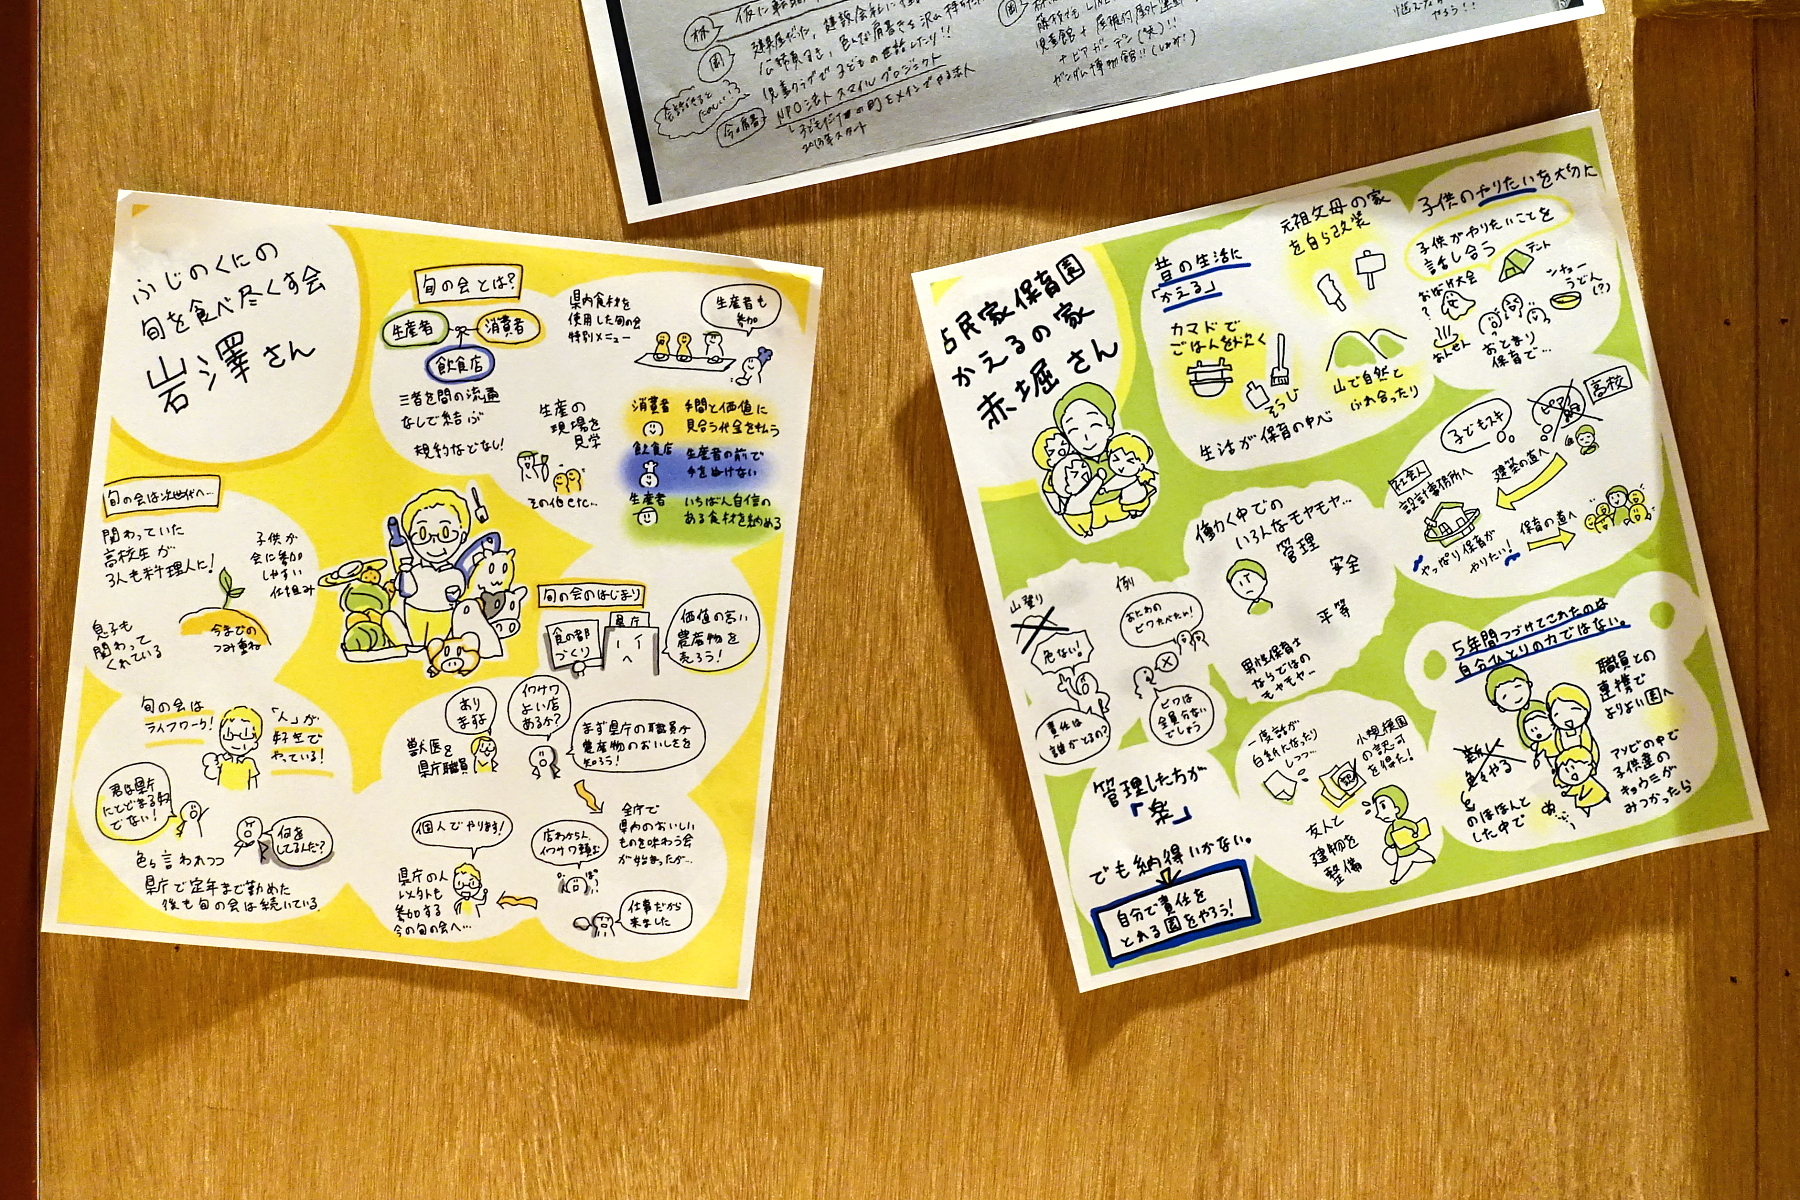 公務員でも、色んな肩書きを沢山持ちたい
児童クラブで子どもの世話したり!!
NPO法人スマイルプロジェクト
今の肩書
2013年スタート
児童館+屋根的屋外運動
+ビアガーデン(笑)!!
ガンダム博物館!!
やろう!!
ふじのくにの
旬を食べ尽くす会
岩澤さん
旬の会とは?
生産者
消費者
飲食店
三者を間の流通
なしで結ぶ
規約などなし!
県内食材を
使用した旬の会
特別メニュー
生産者も
参加
生産の
現場を
見学
その他etc…
消費者 手間と価値に
見合う代金を払う
飲食店 生産者の前で
手をぬけない
生産者 いちばん自信の
ある食材を納める
旬の会は次世代へ…
関わっていた
高校生が
3人も料理人に!
子供が
会に参加
しやすい
仕組み
息子も
関わって
くれている
今までの
つみ重ね
旬の会のはじまり
食の都
づくり
県庁
価値の高い
農産物を
売ろう!
あり
ますよ
イワサワ
よい店
あるか?
獣医&
県庁職員
まず県庁の職員が
農産物のおいしさを
知ろう!
全庁で
県内のおいしい
ものを味わう会
が始まったが…
店わからん
イワサワ頼む
仕事だから
来ました
個人でやります!
県庁の人
以外も
参加する
今の旬の会へ…
旬の会は
ライフワーク!
「人」が
好きで
やっている!
君は県庁
にとどまる器
でない!
何を
してるんだ?
色々言われつつ
県庁で定年まで勤めた
後も旬の会は続いている。
古民家保育園
かえるの家
赤堀さん
昔の生活に
「かえる」
元祖父母の家
を自ら改装
カマドで
ごはんを炊く
そうじ
山で自然と
ふれ合ったり
生活が保育の中心
子供のやりたいを大切に
子供がやりたいことを
話し合う
テント
おばけ大会
?
おんせん
おとまり
保育で…
うどん(?)
高校
子どもスキ
ピアノ
建築の道へ
社会人
設計事務所へ
やっぱり保育が
やりたい!
保育の道へ
働く中での
いろんなモヤモヤ…
管理
安全
平等
男性保育士
ならではの
モヤモヤ…
例
山登り
危ない!
責任は
誰がとるの?
おにわの
ビワたべたい!
ビワは
全員分ない
でしょう
管理した方が
「楽」
でも納得いかない。
自分で責任を
とれる園をやろう!
一度話が
白紙になったり
しつつ…
小規模園
の認可
を得た!
認
友人と
建物を
整備
5年間つづけてこれたのは
自分ひとりの力ではない。
職員との
連携で
よりよい園へ
新しく
色々やる
のほほんと
した中で
アソビの中で
子供達の
キョウミが
みつかったら